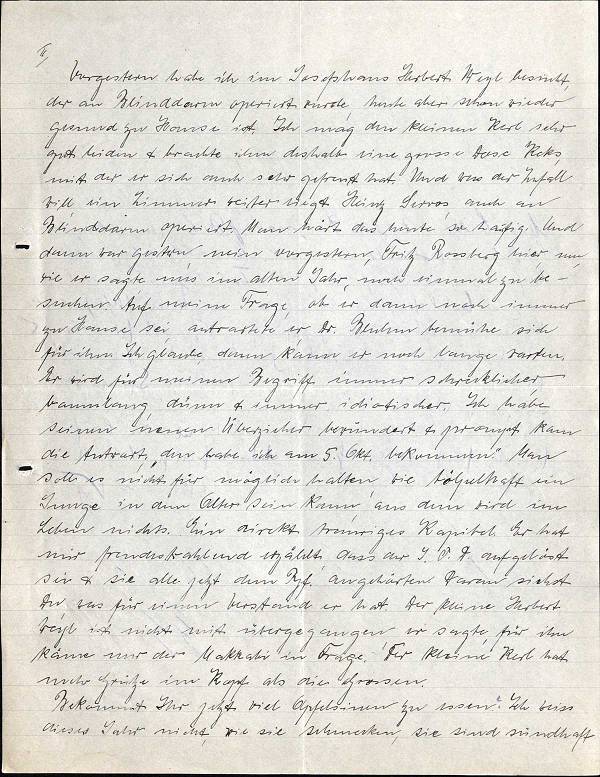 II,
Vorgestern habe ich im Josefshaus Herbert Weyl besucht,
der am Blinddarm operiert wurde heute aber schon wieder
gesund zu Hause ist. Ich mag den kleinen Kerl sehr
gut leiden & brachte ihm deshalb eine grosse Dose Keks,
mit der er sich auch sehr gefreut hat. Und was der Zufall
will ein Zimmer weiter liegt Heinz Servos, auch am
Blinddarm operiert. Man hört das heute so häufig. Und
dann war gestern nein vorgestern, Fritz Rossberg hier um,
wie er sagte uns im alten Jahr noch einmal zu be-
suchen. Auf meine Frage, ob er dann noch immer
zu Hause sei antwortete er Dr. Bluhm bemühe sich
für ihn. Ich glaube, dann kann er noch lange warten.
Er wird für meinen Begriff immer schrecklicher
baumlang, dünn & immer idiotischer. Ich habe
seinen neuen Überzieher bewundert & prompt kam
die Antwort, "den habe ich am 5. Okt. bekommen." Man
soll es nicht für möglich halten wie tölpelhaft ein
Junge in dem Alter sein kann, aus dem wird im
Leben nichts. Ein direkt trauriges Kapitel. Er hat
mir freudestrahlend erzählt dass der J. P. D. aufgelöst
sei & sie alle jetzt dem angehörten. Daran siehst
Du was für einen Verstand er hat. Der kleine Herbert
Weyl ist nicht mit übergegangen er sagte, für ihn
käme nur der Makkabi in Frage. Der kleine Kerl hat
mehr Grütze im Kopf als die Grossen.
Bekommt Ihr jetzt viel Apfelsinen zu essen? Ich weiss
dieses Jahr nicht, wie sie schmecken, sie sind sündhaft